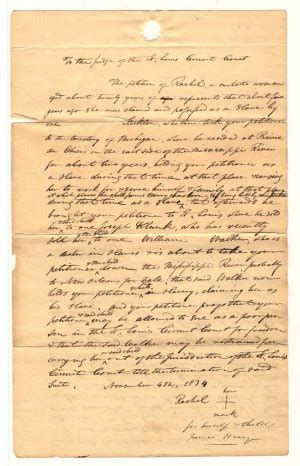 To the Judge of the St. Louis Circuit Court
The petition of Rachel, a mulatto woman
aged about twenty years represents that about five
years ago she was claimed and possessed as a Slave by
one Stockton, who then took your petitioner
to the territory of Michigan. There he resided at Prairie
du Chien on the east side of the Mississippi River
for about two years holding your petitioner as
a Slave during that time at that place causing
her to work for & serve himself & family at that place
during that time as a slave, that afterwards he
brought your petitioner to St. Louis where he sold
her to one Joseph Klunk, who has recently
sold her to one William Walker, who is
a dealer in slaves & is about to take your
& child
petitioner down the Mississippi River probably
to New Orleans for sale, that said Walker now
holds your petitioner in slavery, claiming her as
& child
his slave. And your petitioner prays that your
& child
petitioner may be allowed to sue as a poor per-
son in the St. Louis Circuit Court for freedom
& that the said Walker may be restrained from
& child
carrying her out of the jurisdiction of the St. Louis
Circuit Court till the termination of said
Suit. November 4th, 1834
her
Rachel +
mark
for herself & child
James Henry